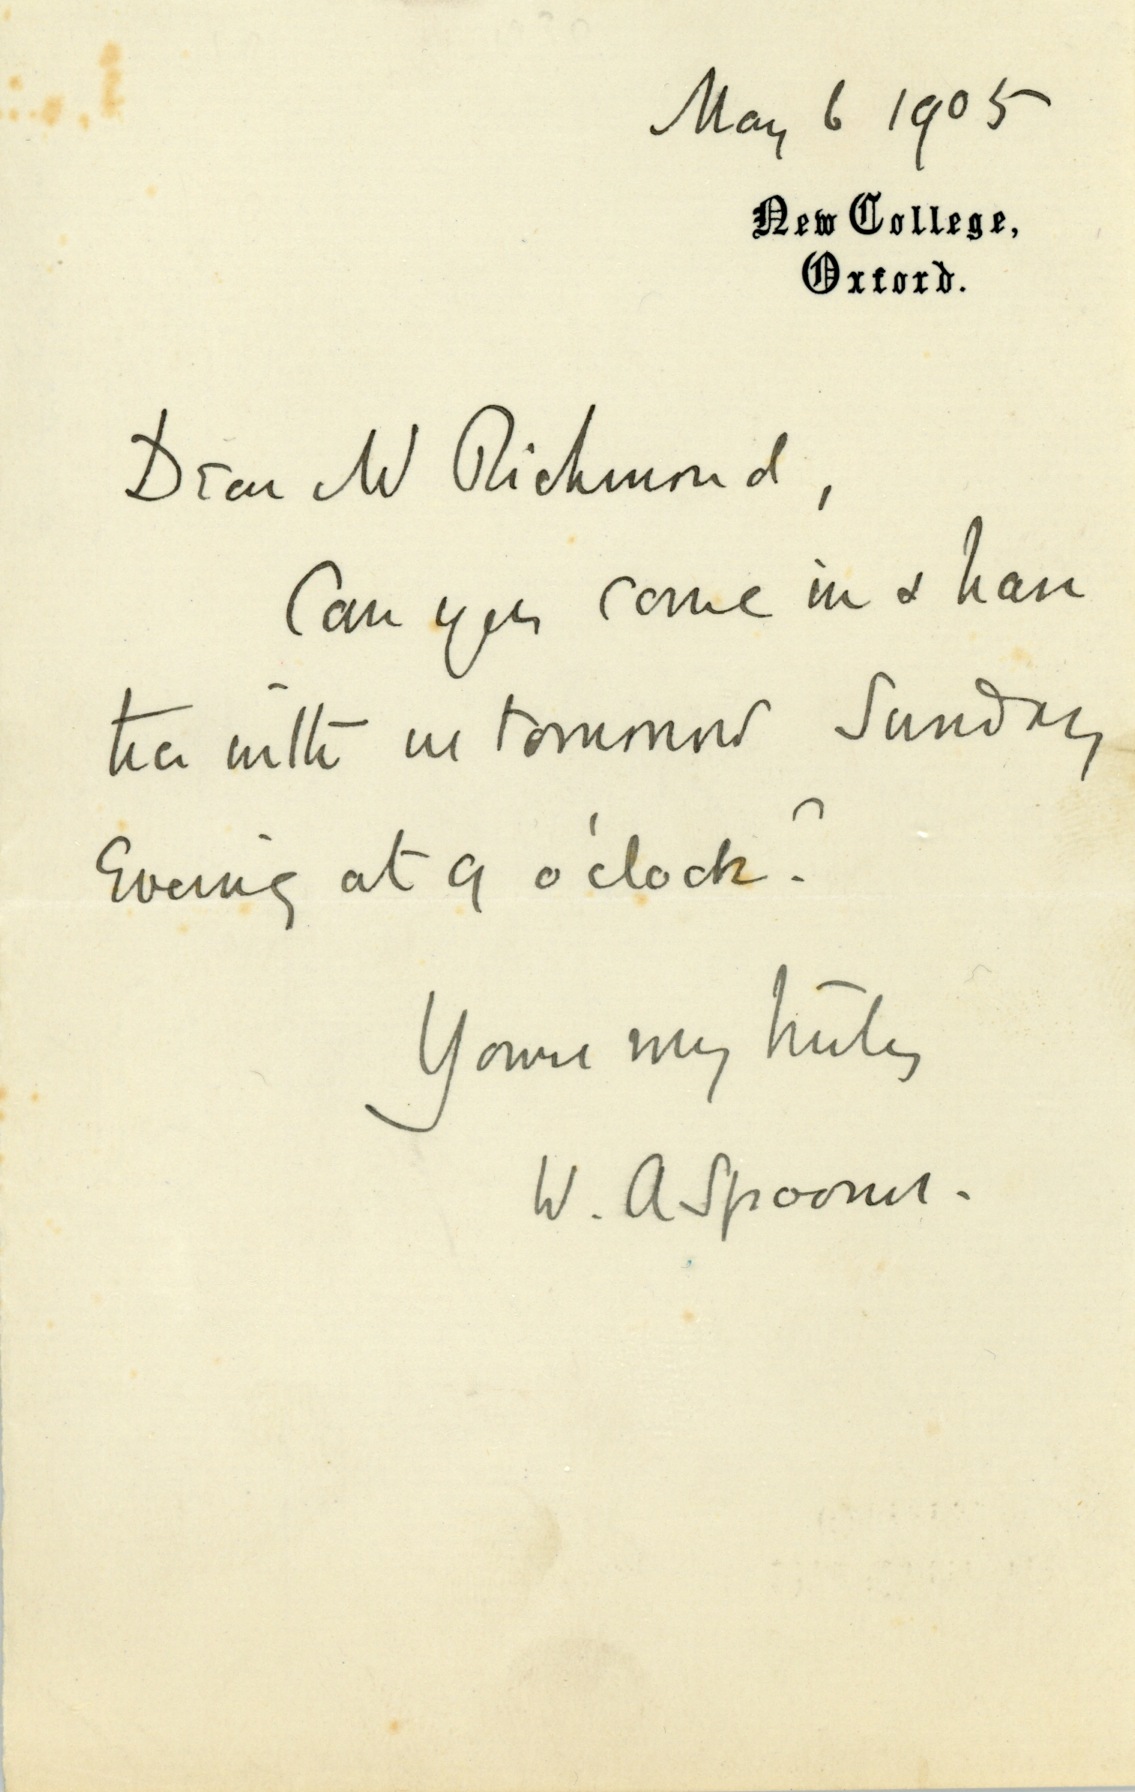 May 6 1905
New College,
Oxford.
Dear Mr Richmond,
Can you come in & have
tea with us tomorrow Sunday
Evening at 9 o'clock?
Yours very truly
W. A Spooner.